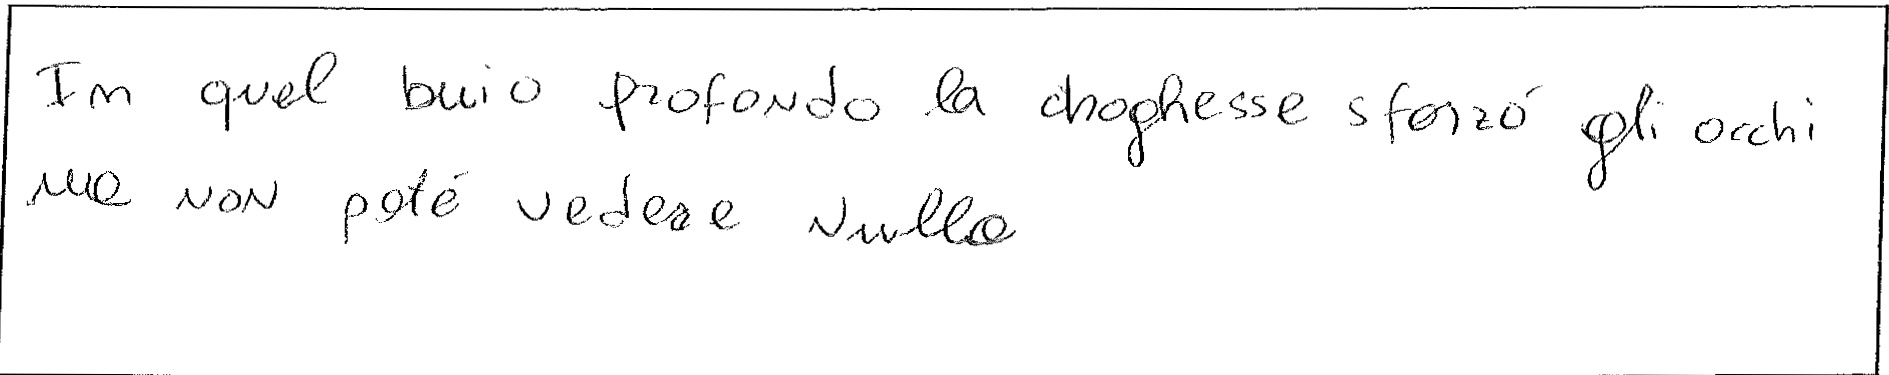 In quel buio profondo la choghesse sforzó gli occhi
ma non poté vedere nulla